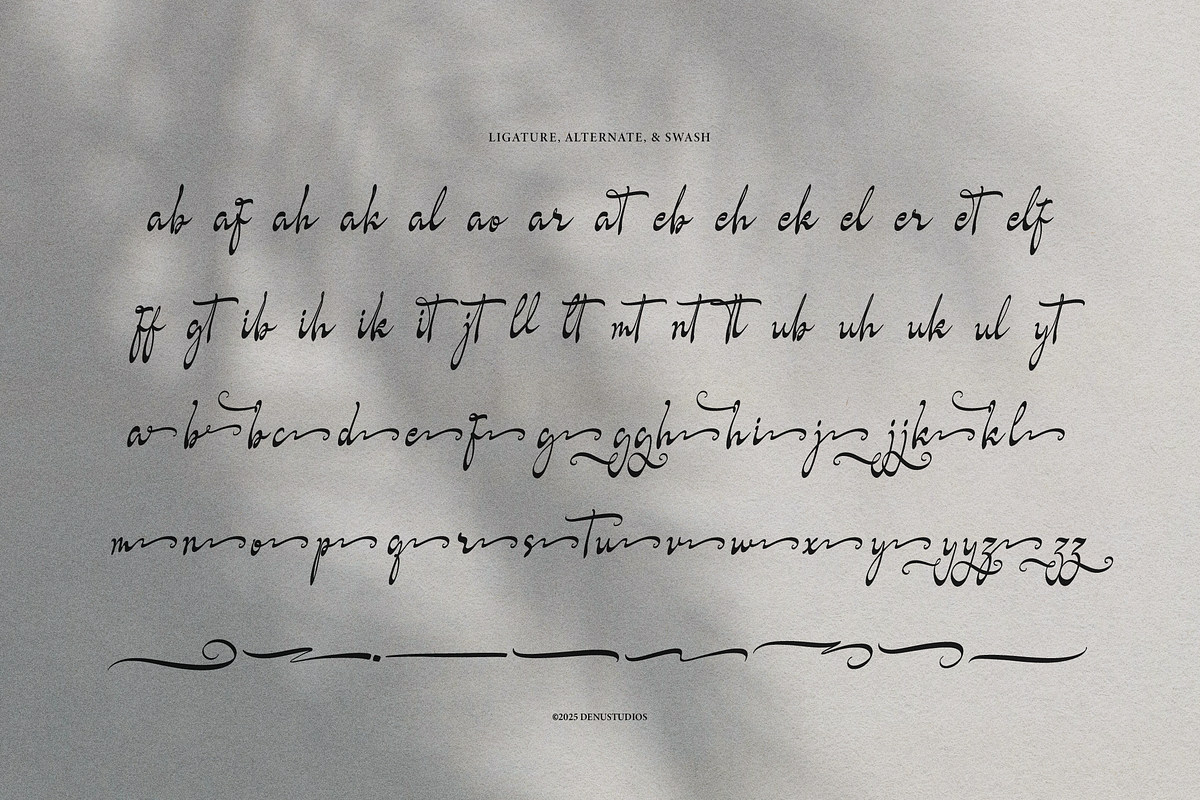 LIGATURE, ALTERNATE, & SWASH
ab af ah ak al ao ar at eb eh ek el er et elf
ff gt ib ih ik it jt ll lt mt nt tt ub uh uk ul yt
a b b c d e f g g g h h i j j j k k l
m n o p q r s t u v w x y y y z z z
©2025 DENUSTUDIOS